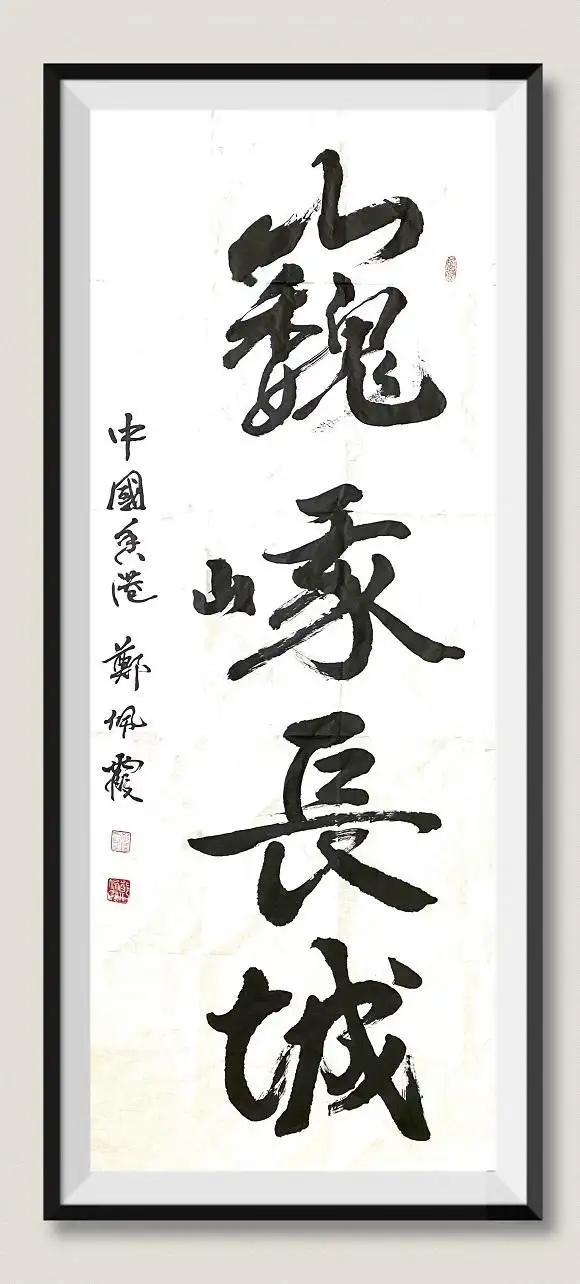 巍峨長城
中國香港 鄭佩霞